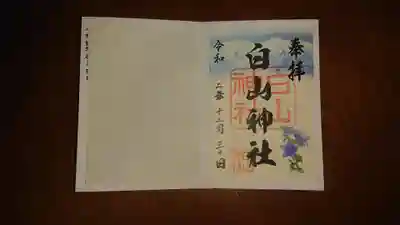 奉拝
白山神社
白山
神社
令和二年十二月三十日